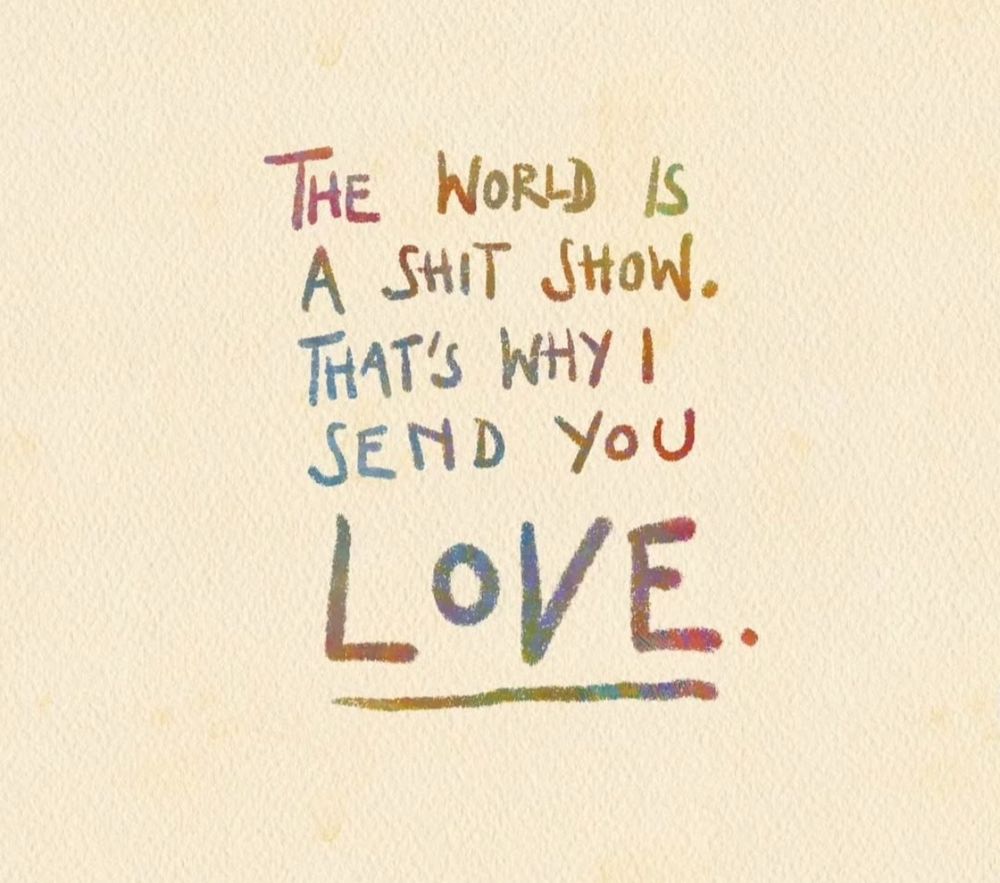 THE WORLD IS
A SHIT SHOW.
THAT'S WHY I
SEND YOU
LOVE.